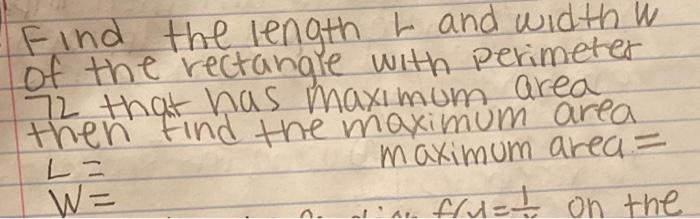 Find the length L and width W
of the rectangle with perimeter
72 that has maximum area
then find the maximum area
L = maximum area =
W =
on the